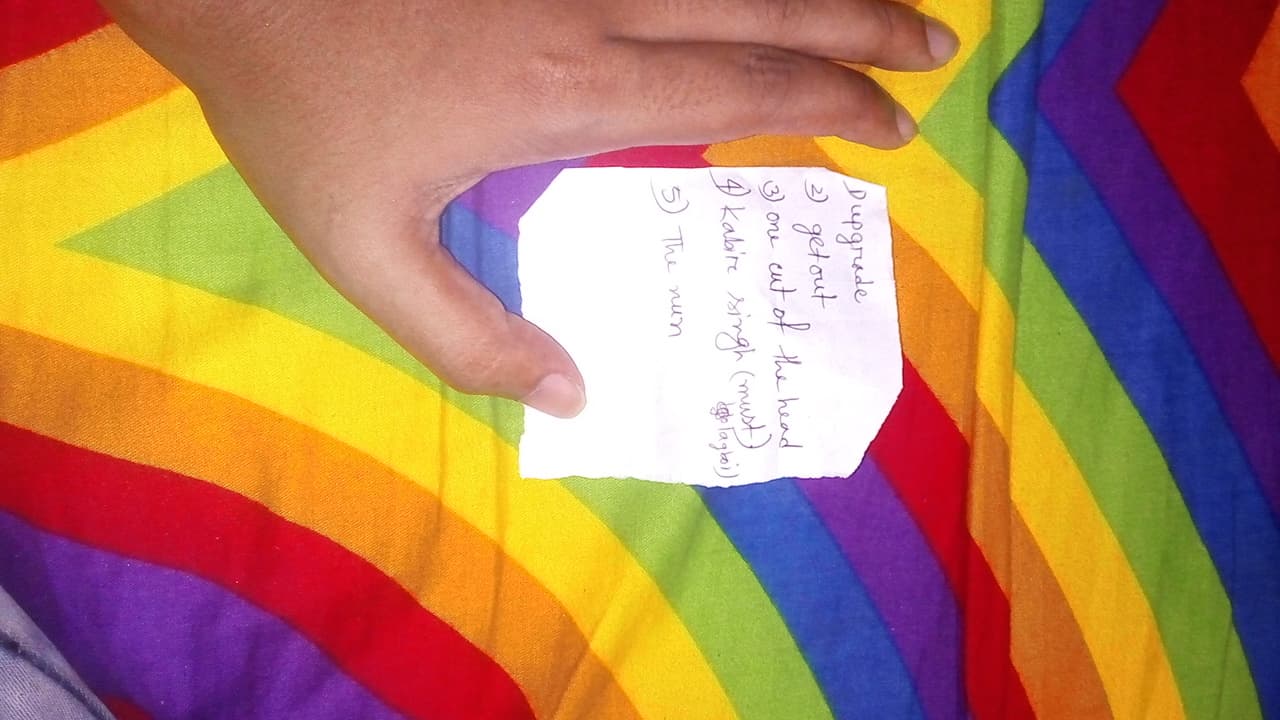 1) upgrade
2) getout
3) one cut of the head
4) Kabir singh (must)
lagboi)
5) The nun